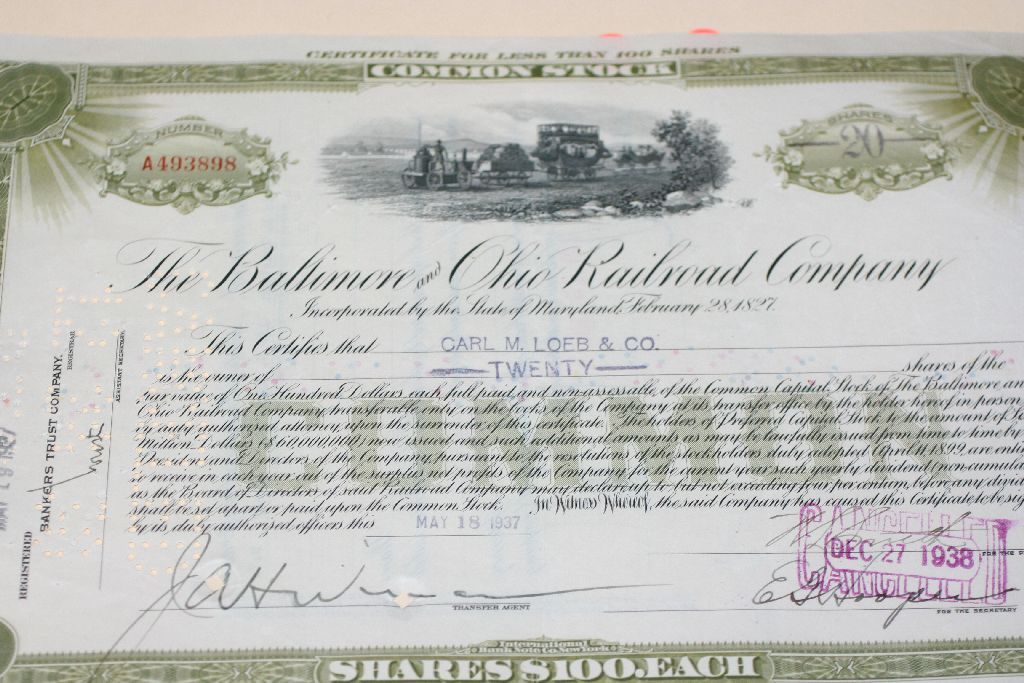 CERTIFICATE FOR LESS THAN 100 SHARES
COMMON STOCK
NUMBER
A493898
SHARES
20
The Baltimore and Ohio Railroad Company
Incorporated by the State of Maryland, February 28, 1827.
This Certifies that CARL M. LOEB & CO.
is the owner of TWENTY shares of the
par value of One Hundred Dollars each full paid and non-assessable of the Common Capital Stock of The Baltimore an
Ohio Railroad Company, transferable only on the books of the Company at its transfer office by the holder hereof in person
duly authorized attorney, upon the surrender of this certificate. The holders of Preferred Capital Stock to the amount of
Million Dollars ($60,000,000) now issued and such additional amounts as may be lawfully issued from time to time by
President and Directors of the Company, pursuant to the resolutions of the stockholders duly adopted April 11, 1899, are enti
to receive in each year out of the surplus net profits of the Company for the current year such yearly dividend (noncumula
as the Board of Directors of said Railroad Company may declare, up to but not exceeding four per centum, before any divid
shall be set apart or paid upon the Common Stock. In Witness Whereof, the said Company has caused this Certificate to be sig
by its duly authorized officers this MAY 18 1937
COMMON
REGISTERED
BANKERS TRUST COMPANY,
REGISTRAR
ASSISTANT SECRETARY
TRANSFER AGENT
CANCELLED
DEC 27 1938
CANCELLED
FOR THE P
FOR THE SECRETARY
International
Bank Note Co. New York
SHARES $100. EACH